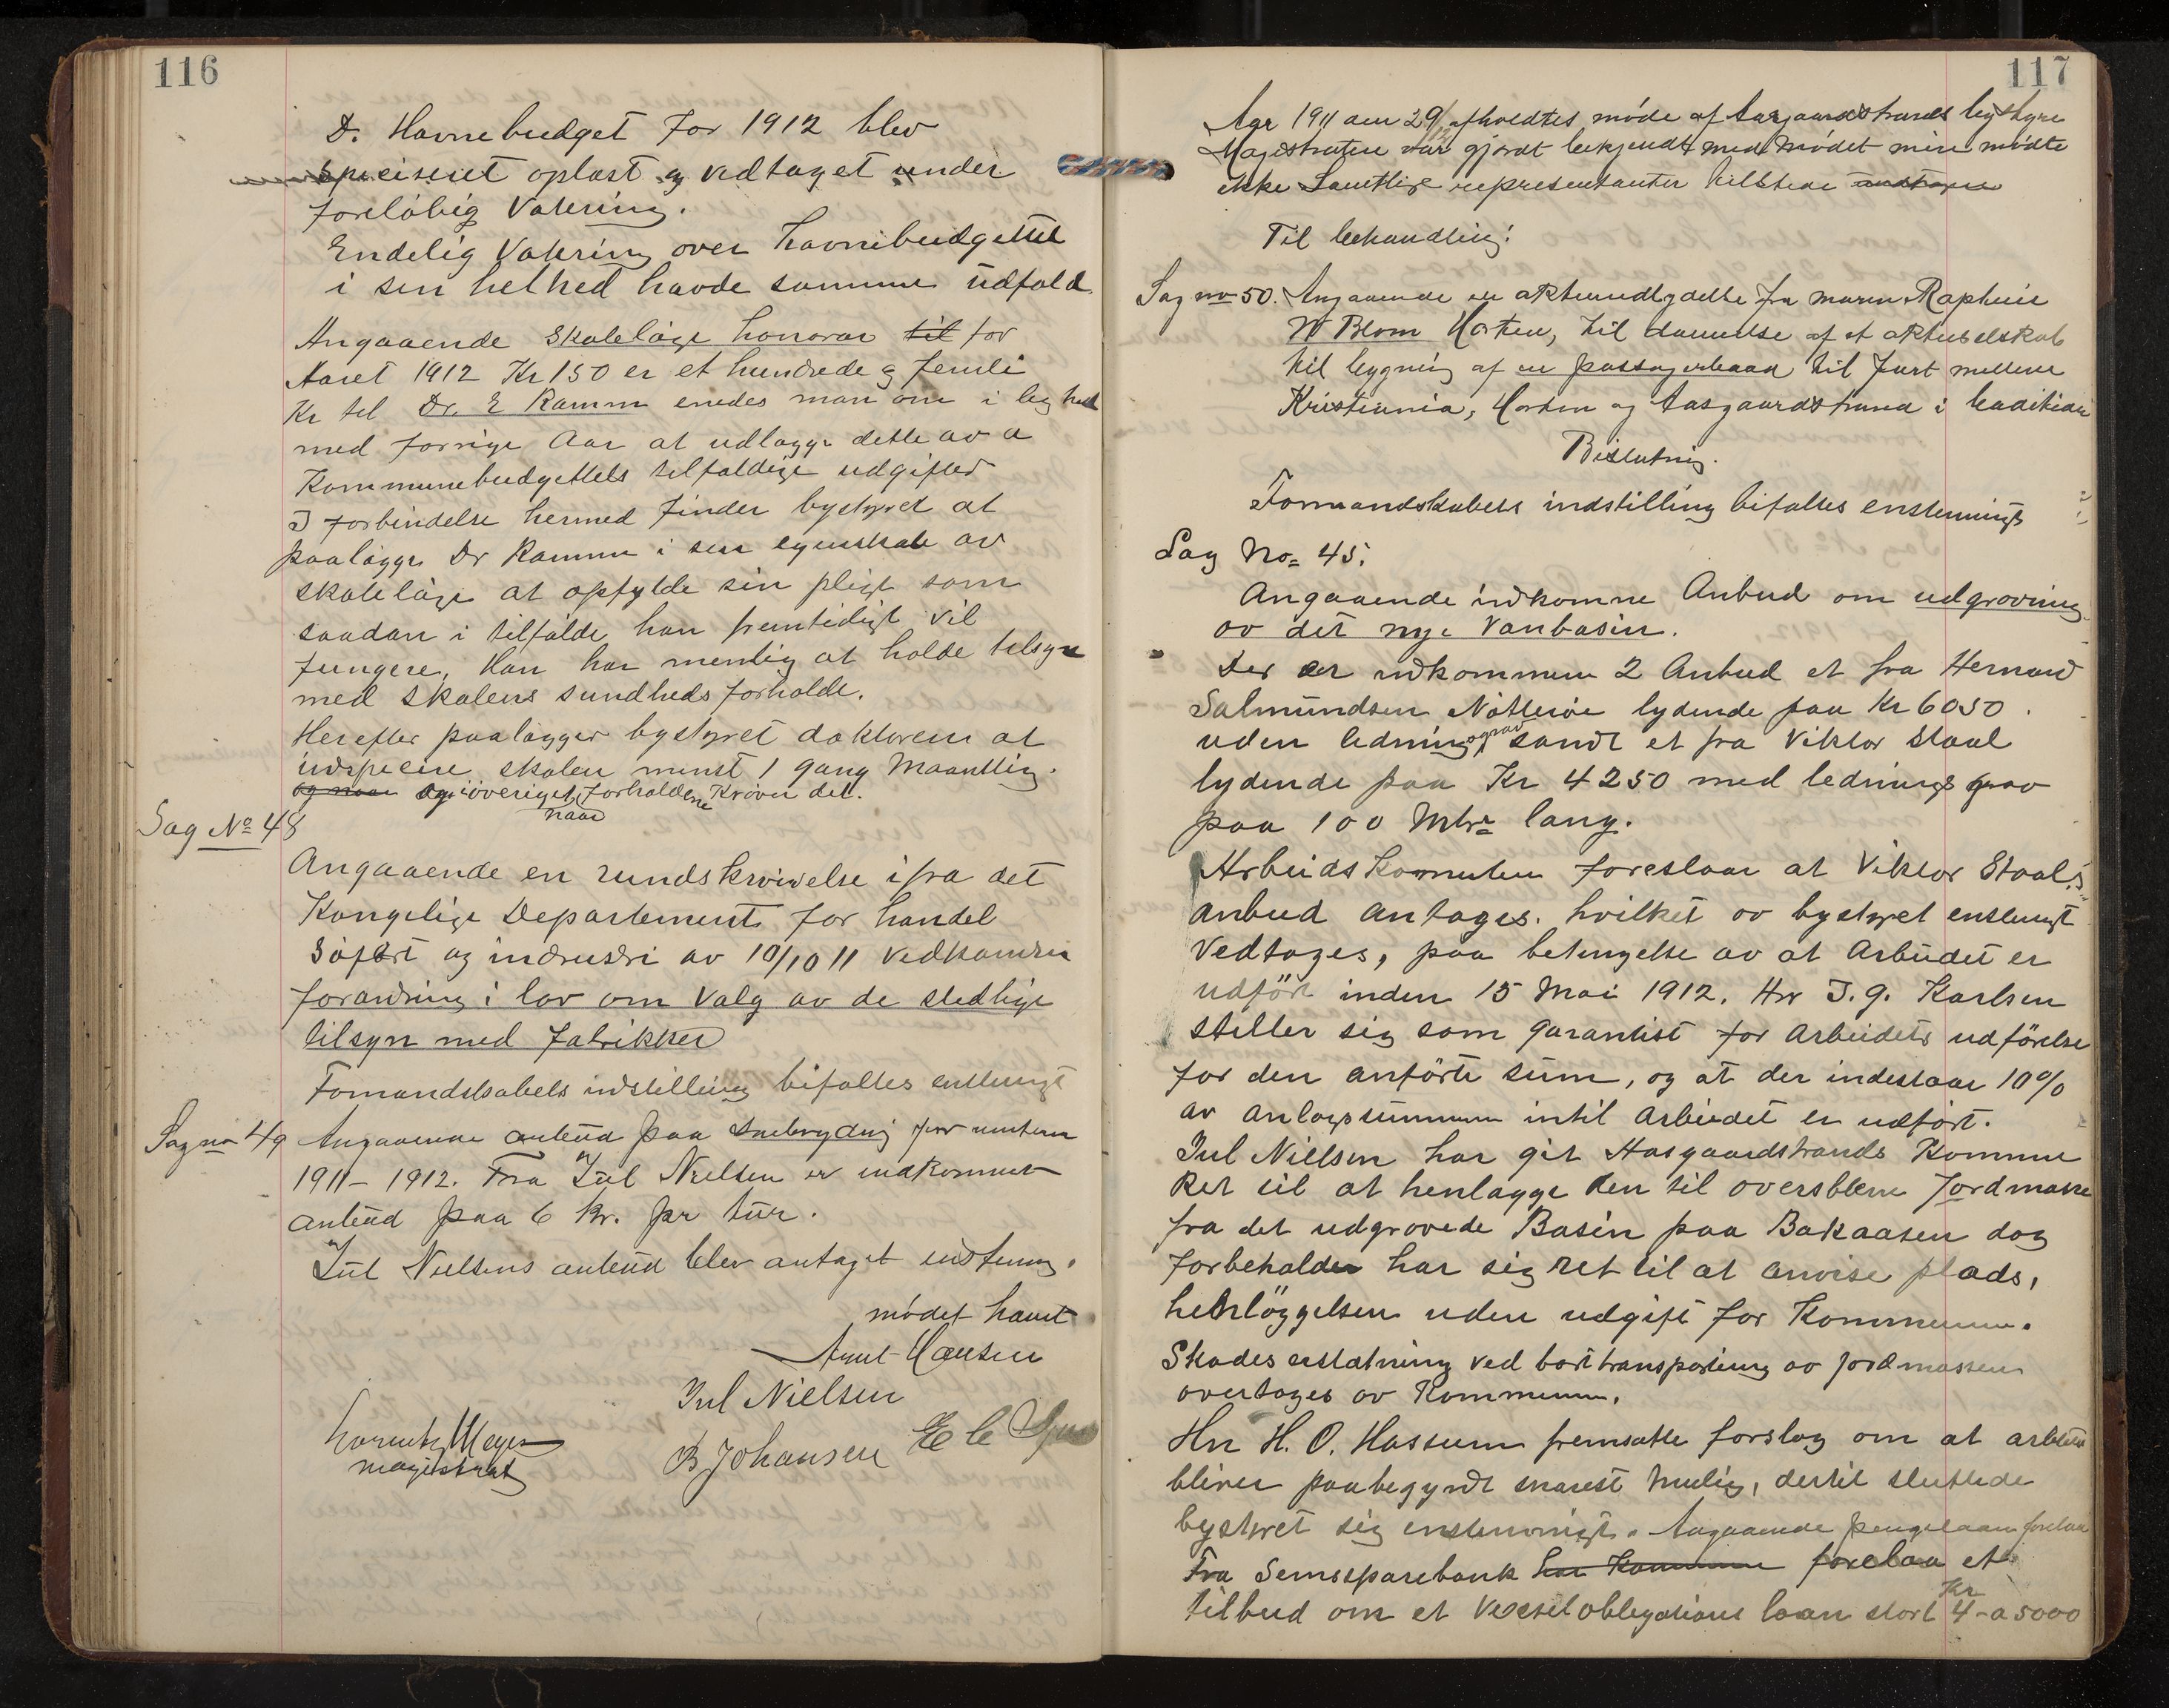 116
D. Havnebudget for 1912 blev
speciseret oplæst og vedtaget under
foreløbig Votering.
Endelig Votering over havnebudgettet
i sin helhed havde samme udfald
Angaaende skolelæge honorar til for
Aaret 1912 Kr 150 er et hundrede og femti
Kr til Dr. E Ramm enedes man om i lighed
med forrige Aar at udlægge dette av a
Kommunebudgettets tilfældige udgifter
I forbindelse hermed finder bystyret at
paalægge Dr Ramm i sin egenskab av
skolelæge at opfylde sin pligt som
saadan i tilfælde han fremtidigt vil
fungere. Han har nemlig at holde tilsyn
med skolens sundheds forholde.
Herefter paalægger bystyret doktoren at
inspicere skolen minst 1 gang Maantlig.
og naar og iøvrigt naar forholdene kræver det.
Sag No 48
Angaaende en rundskrivelse ifra det
Kongelige Departement for handel
Søfart og industri av 10/10 11 vedkommende
forandring i lov om Valg av de stedlige
tilsyn med fabrikker
Formandskabets indstilling bifaltes enstemigt
Sag no 49 Angaaende anbud paa snebrydning for vintern
1911-1912. Fra Jul Nielsen er indkommet
anbud paa 6 kr. pr tur.
Jul Nielsens anbud blev antaget enstemig.
mødet hævet
Arnt Hansen
Jul Nielsen
Lorentz Meyer
magistrat
B Johansen E C
117
Aar 1911 den 29/12 afholdtes møde af Aasgaardstrands bystyre
Magistraten var gjordt bekjendt med mødet men mødte
ikke Samtlige representanter tilstede
Til behandling:
Sag no 50. Angaaende en aktieindbydelse fra
Blom Horten, til dannelse af et aktieselskab
til bygning af en passagerbaad til fart mellem
Kristiania, Horten og Aasgaardstrand i badetiden
Beslutning.
Formandskabets indstilling bifaltes enstemmigt
Sag No= 45.
Angaaende indkomne Anbud om udgravning
av det nye Vanbasin.
Der er indkommen 2 Anbud et fra Hernard
Salmundsen Nøtterøe lydende paa Kr 6050.
uden ledningsgrav samt et fra Viktor Staal
lydende paa Kr 4250 med ledningsgrav
paa 100 Mtr lang.
Arbeidskomiteen foreslaar at Viktor Staals
anbud antages. hvilket av bystyret enstemigt
Vedtages, paa betingelse av at Arbeidet er
udført inden 15 Mai 1912. Hr J. G. Karlsen
stiller sig som garantist for arbeidets udførelse
for den anførte sum, og at der indestaar 10%
av anlægssummen intil arbeidet er udført.
Jul Nielsen har git Aasgaardstrands Komune
Ret til at henlægge den til oversblevne Jordmasse
fra det udgravede Basin paa Bakaasen dog
forbeholder har sig ret til at anvise plads,
henlæggelsen uden udgift for Kommunen.
Skades erstatning ved borttransportering av jordmassen
overtages av Kommunen.
Hr H. O. Hassum fremsatte forslag om at arbeidet
bliver paabegyndt snarest mulig, dertil sluttede
bystyret sig enstemmigt. Angaaende pengelaan forelaa
Fra Semssparebank har kommunen forelaa et
tilbud om et Vexselobligations laan stort Kr 4-a 5000